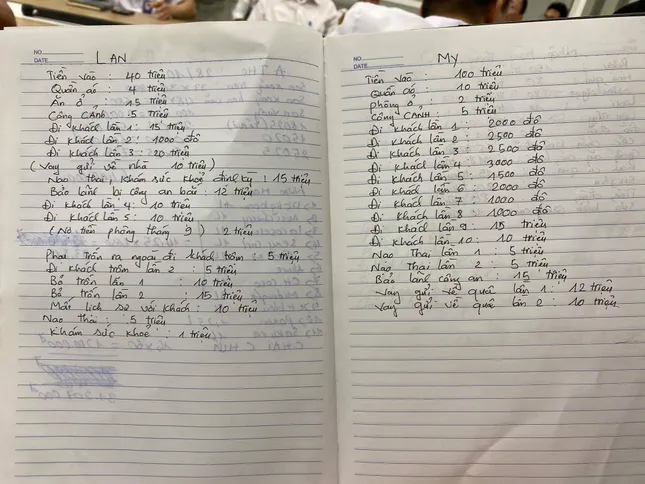 NO
DATE
LAN
Tiền vào : 40 triệu
Quần áo : 4 triệu
Ăn ở : 15 triệu
Công CẢNH : 5 triệu
Đi khách lần 1 : 15 triệu
Đi khách lần 2 : 1000 đô
Đi khách lần 3 : 20 triệu
(Vay gửi về nhà 10 triệu)
Nạo thai, khám sức khoẻ định kỳ : 15 triệu
Bảo lãnh bị công an bắt : 12 triệu
Đi khách lần 4 : 10 triệu
Đi khách lần 5 : 10 triệu
(Nợ tiền phòng tháng 9) 2 triệu
Phạt trốn ra ngoài đi khách trộm : 5 triệu
Đi khách trộm lần 2 : 5 triệu
Bỏ trốn lần 1 : 10 triệu
Bỏ trốn lần 2 : 15 triệu
Mất lịch sự với khách : 10 triệu
Nạo thai : 5 triệu
Khám sức khoẻ : 1 triệu
NO
DATE
MY
Tiền vào : 100 triệu
Quần áo : 10 triệu
phòng ở : 2 triệu
Công CẢNH : 5 triệu
Đi khách lần 1 : 2000 đô
Đi khách lần 2 : 2500 đô
Đi khách lần 3 : 2500 đô
Đi khách lần 4 : 3000 đô
Đi khách lần 5 : 1500 đô
Đi khách lần 6 : 2000 đô
Đi khách lần 7 : 1000 đô
Đi khách lần 8 : 1000 đô
Đi khách lần 9 : 15 triệu
Đi khách lần 10 : 10 triệu
Nạo Thai lần 1 : 5 triệu
Nạo Thai lần 2 : 5 triệu
Bảo lãnh công an : 15 triệu
Vay gửi về quê lần 1 : 12 triệu
Vay gửi về quê lần 2 : 10 triệu